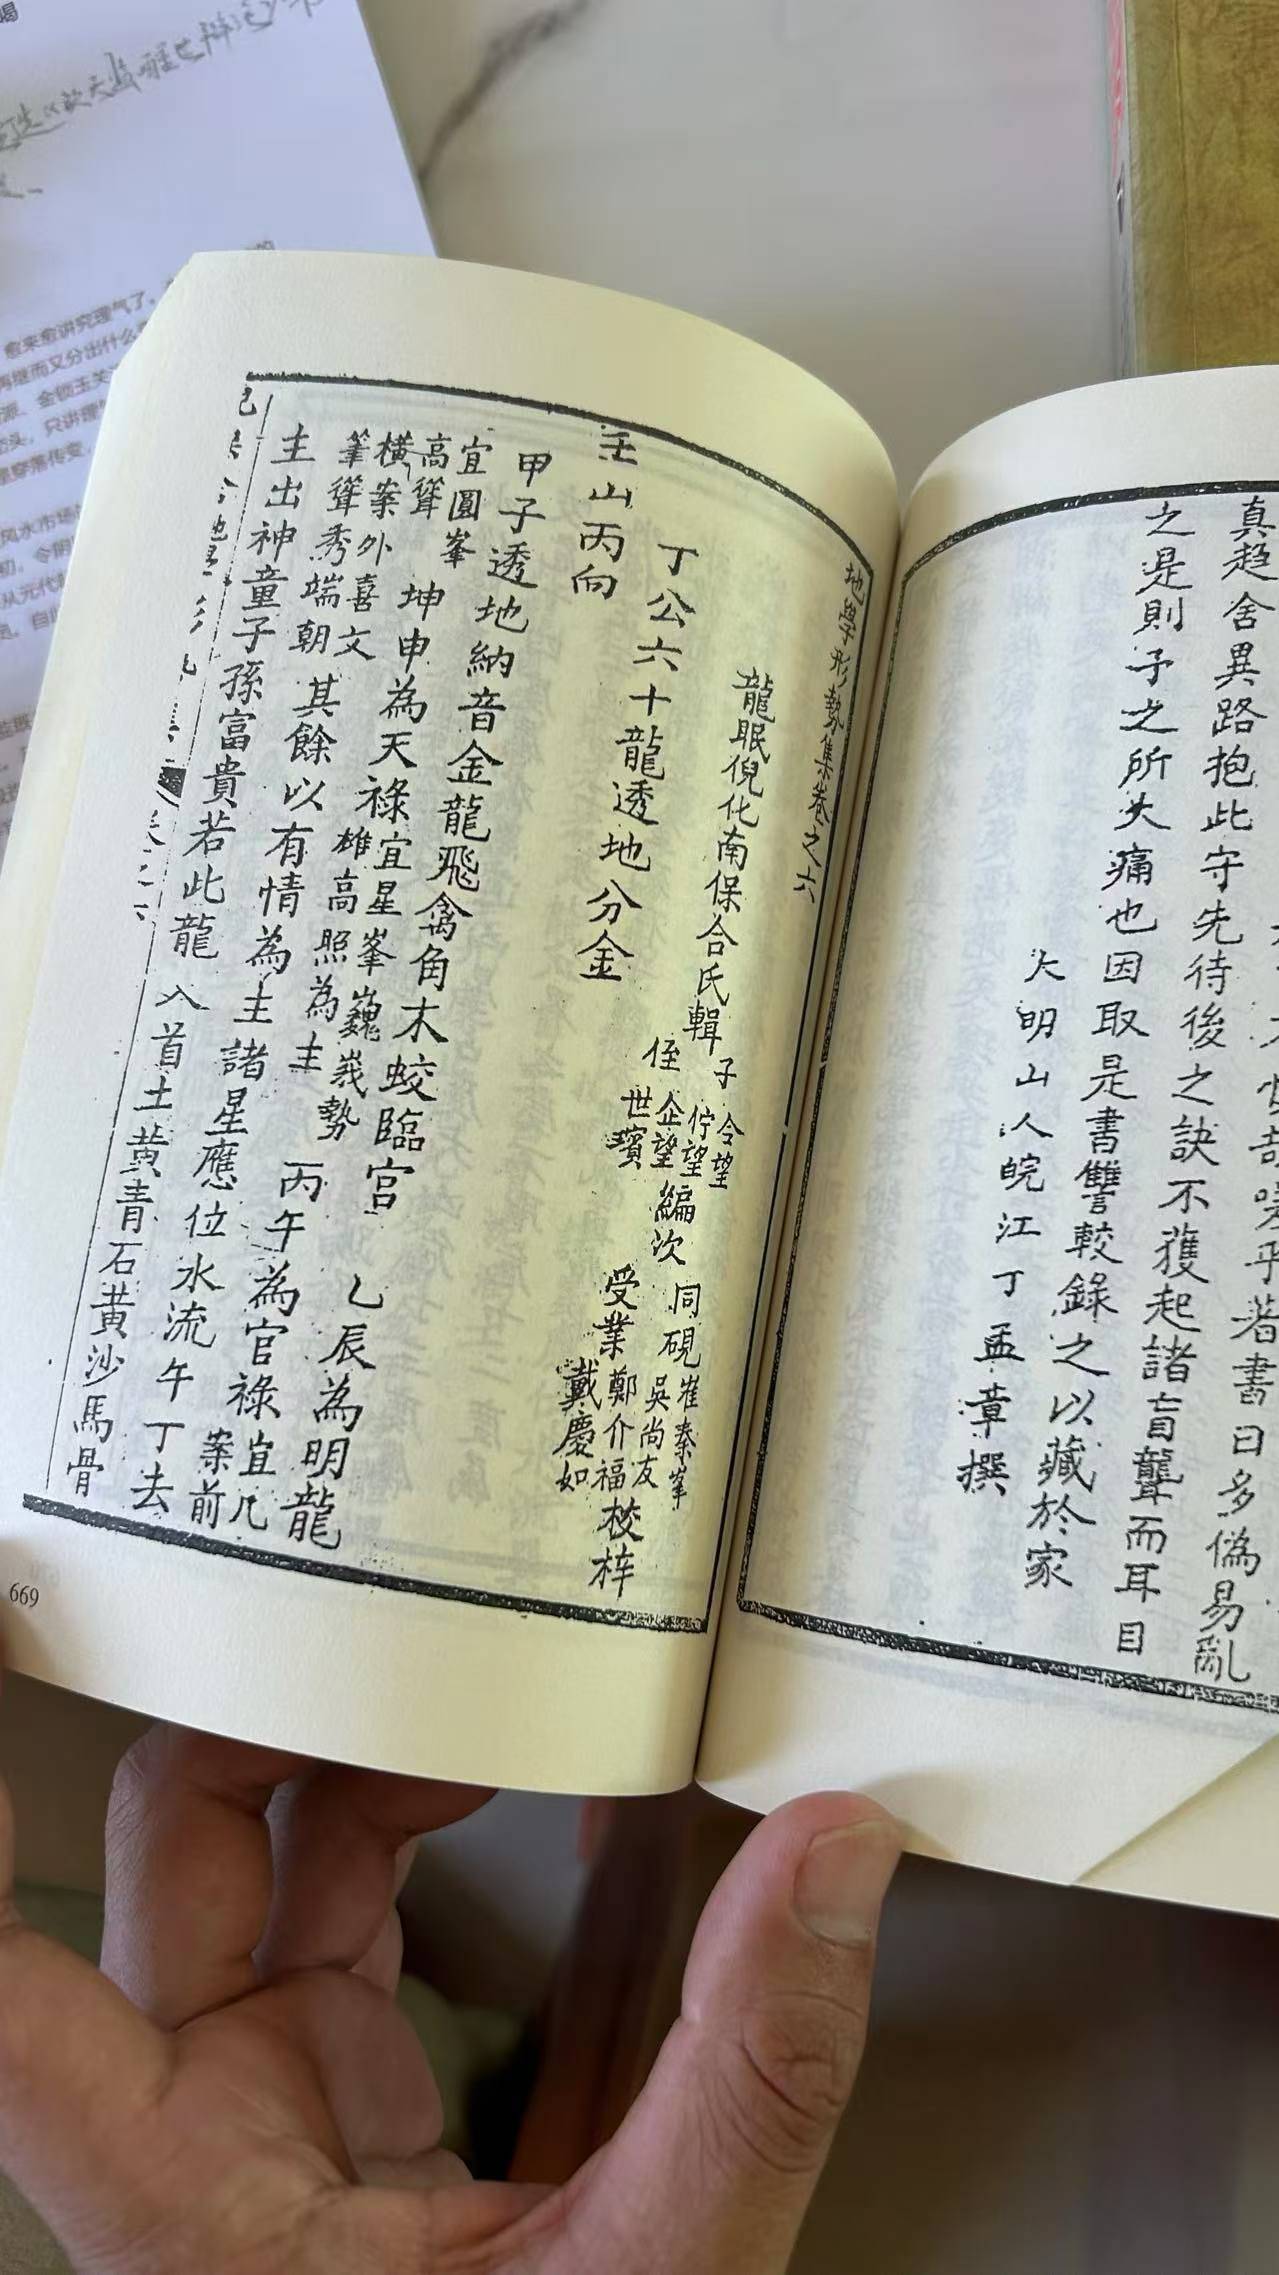 真趋舍異路抱此守先待後之訣不獲起諸盲聾而耳目
之是則予之所大痛也因取是書讐較錄之以藏於家
大明山人皖江丁孟章撰
地學形勢集卷之六
龍眠倪化南保合氏輯
子 令望 佇望 企望
侄 世璸
編次
同硯 崔秦峯 吳尚友
受業 鄭介福 戴慶如
校梓
丁公六十龍透地分金
壬山丙向
甲子透地納音金龍飛禽角木蛟臨宮
宜圓峯高聳
坤申為天祿
宜星峯巍峩勢雄高照為主
乙辰為明龍
橫案外喜文筆聳秀端朝
其餘以有情為主
丙午為官祿
宜几案前
主出神童子孫富貴若此龍
諸星應位水流午丁去
入首土黃青石黃沙馬骨
669
愈来愈讲究理气了
再继而又分出什么
只讲理
风水市场
从元代